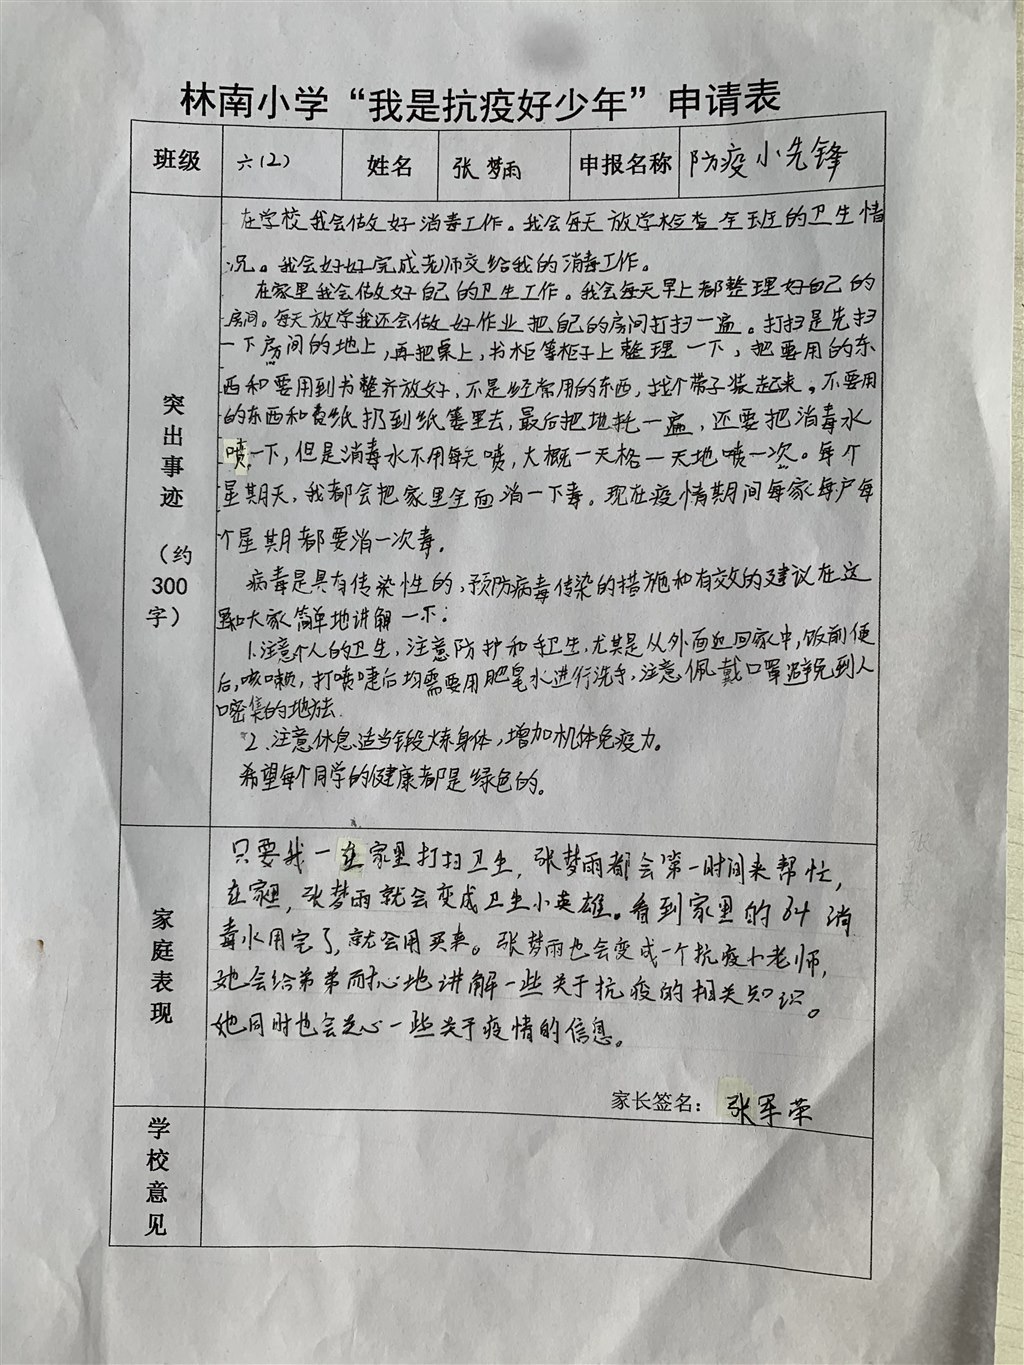 林南小学“我是抗疫好少年”申请表
班级 六(2) 姓名 张梦雨 申报名称 防疫小先锋
突出事迹（约300字）
在学校我会做好消毒工作。我会每天放学检查全班的卫生情
况。我会好好完成老师交给我的消毒工作。
在家里我会做好自己的卫生工作。我会每天早上都整理好自己的
房间。每天放学我还会做好作业把自己的房间打扫一遍。打扫是先扫
一下房间的地上,再把桌上,书柜等柜子上整理一下,把要用的东
西和要用到书整齐放好,不是经常用的东西,找个带子装起来。不要用
的东西和纸扔到纸篓里去,最后把地拖一遍,还要把消毒水
喷一下,但是消毒水不用每天喷,大概一天格一天地喷一次。每个
星期天,我都会把家里全面消一下毒。现在疫情期间每家每户每
个星期都要消一次毒.
病毒是具有传染性的,预防病毒传染的措施和有效的建议在这
里和大家简单地讲解一下:
1.注意个人的卫生,注意防护和手卫生,尤其是从外面回家中,饭前便
后,咳嗽,打喷嚏后均需要用肥皂水进行洗手,注意佩戴口罩避免到人
口密集的地方去.
2、注意休息适当锻炼身体,增加机体免疫力。
希望每个同学的健康都是绿色的。
家庭表现
只要我一在家里打扫卫生,张梦雨都会第一时间来帮忙,
在家里,张梦雨就会变成卫生小英雄。看到家里的84消
毒水用完了,就会用买来。张梦雨也会变成一个抗疫小老师,
她会给弟弟耐心地讲解一些关于抗疫的相关知识。
她同时也会关心一些关于疫情的信息。
家长签名: 张军荣
学校意见